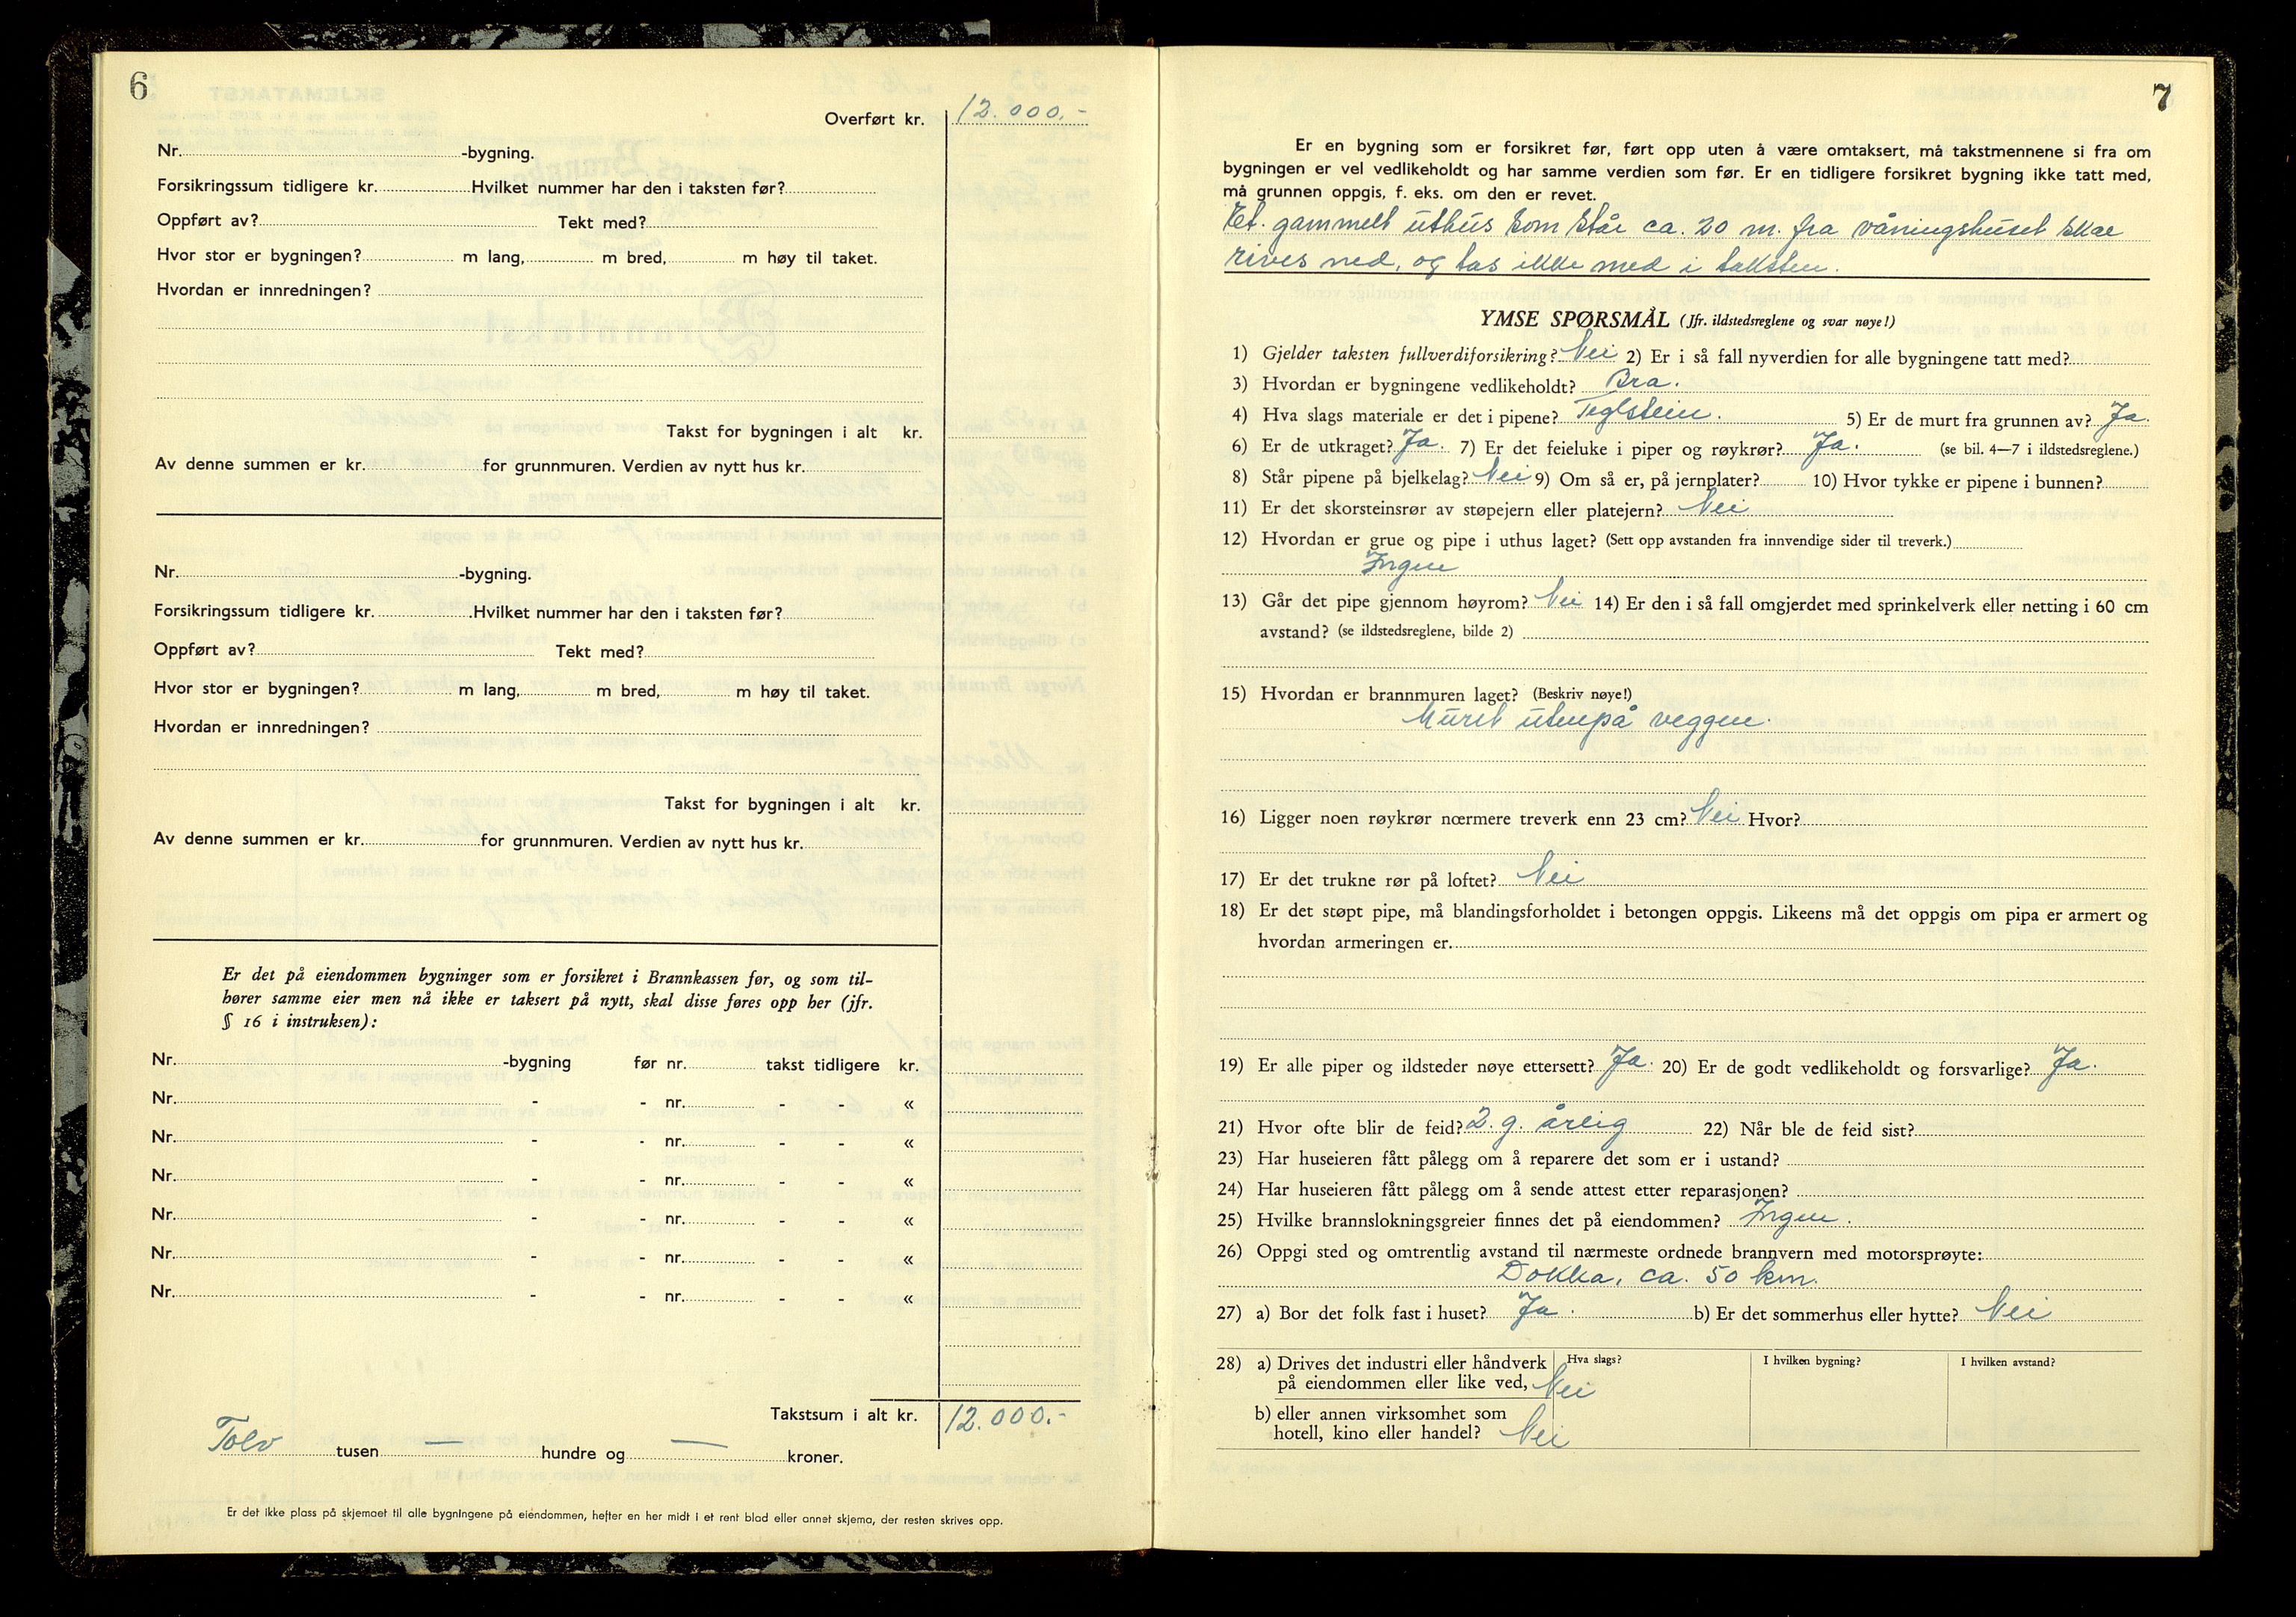 6
Overført kr. 12.000.-
Nr. -bygning.
Forsikringssum tidligere kr. Hvilket nummer har den i taksten før?
Oppført av? Tekt med?
Hvor stor er bygningen? m lang, m bred, m høy til taket.
Hvordan er innredningen?
Takst for bygningen i alt kr.
Av denne summen er kr. for grunnmuren. Verdien av nytt hus kr.
Nr. -bygning.
Forsikringssum tidligere kr. Hvilket nummer har den i taksten før?
Oppført av? Tekt med?
Hvor stor er bygningen? m lang, m bred, m høy til taket.
Hvordan er innredningen?
Takst for bygningen i alt kr.
Av denne summen er kr. for grunnmuren. Verdien av nytt hus kr.
Er det på eiendommen bygninger som er forsikret i Brannkassen før, og som til-
hører samme eier men nå ikke er taksert på nytt, skal disse føres opp her (jfr.
§ 16 i instruksen):
Nr. -bygning før nr. takst tidligere kr.
Nr. - - nr. - - «
Nr. - - nr. - - «
Nr. - - nr. - - «
Nr. - - nr. - - «
Nr. - - nr. - - «
Nr. - - nr. - - «
Takstsum i alt kr. 12.000.-
Tolv tusen — hundre og — kroner.
Er det ikke plass på skjemaet til alle bygningene på eiendommen, hefter en her midt i et rent blad eller annet skjema, der resten skrives opp.
7
Er en bygning som er forsikret før, ført opp uten å være omtaksert, må takstmennene si fra om
bygningen er vel vedlikeholdt og har samme verdien som før. Er en tidligere forsikret bygning ikke tatt med,
må grunnen oppgis, f. eks. om den er revet.
Et. gammelt uthus som står ca. 20 m. fra våningshuset skal
rives ned, og tas ikke med i taksten.
YMSE SPØRSMÅL (Jfr. ildstedsreglene og svar nøye!)
1) Gjelder taksten fullverdiforsikring? Nei 2) Er i så fall nyverdien for alle bygningene tatt med?
3) Hvordan er bygningene vedlikeholdt? Bra.
4) Hva slags materiale er det i pipene? Teglstein. 5) Er de murt fra grunnen av? Ja.
6) Er de utkraget? Ja. 7) Er det feieluke i piper og røykrør? Ja. (se bil. 4—7 i ildstedsreglene.)
8) Står pipene på bjelkelag? Nei 9) Om så er, på jernplater? 10) Hvor tykke er pipene i bunnen?
11) Er det skorsteinsrør av støpejern eller platejern? Nei
12) Hvordan er grue og pipe i uthus laget? (Sett opp avstanden fra innvendige sider til treverk.)
Ingen
13) Går det pipe gjennom høyrom? Nei 14) Er den i så fall omgjerdet med sprinkelverk eller netting i 60 cm
avstand? (se ildstedsreglene, bilde 2)
15) Hvordan er brannmuren laget? (Beskriv nøye!)
Muret utenpå veggen.
16) Ligger noen røykrør nærmere treverk enn 23 cm? Nei Hvor?
17) Er det trukne rør på loftet? Nei
18) Er det støpt pipe, må blandingsforholdet i betongen oppgis. Likeens må det oppgis om pipa er armert og
hvordan armeringen er.
19) Er alle piper og ildsteder nøye ettersett? Ja. 20) Er de godt vedlikeholdt og forsvarlige? Ja.
21) Hvor ofte blir de feid? 2. g. årlig 22) Når ble de feid sist?
23) Har huseieren fått pålegg om å reparere det som er i ustand?
24) Har huseieren fått pålegg om å sende attest etter reparasjonen?
25) Hvilke brannslokningsgreier finnes det på eiendommen? Ingen.
26) Oppgi sted og omtrentlig avstand til nærmeste ordnede brannvern med motorsprøyte:
Dokka, ca. 50 km.
27) a) Bor det folk fast i huset? Ja. b) Er det sommerhus eller hytte? Nei
28) a) Drives det industri eller håndverk Hva slags? I hvilken bygning? I hvilken avstand?
på eiendommen eller like ved, Nei
b) eller annen virksomhet som
hotell, kino eller handel? Nei